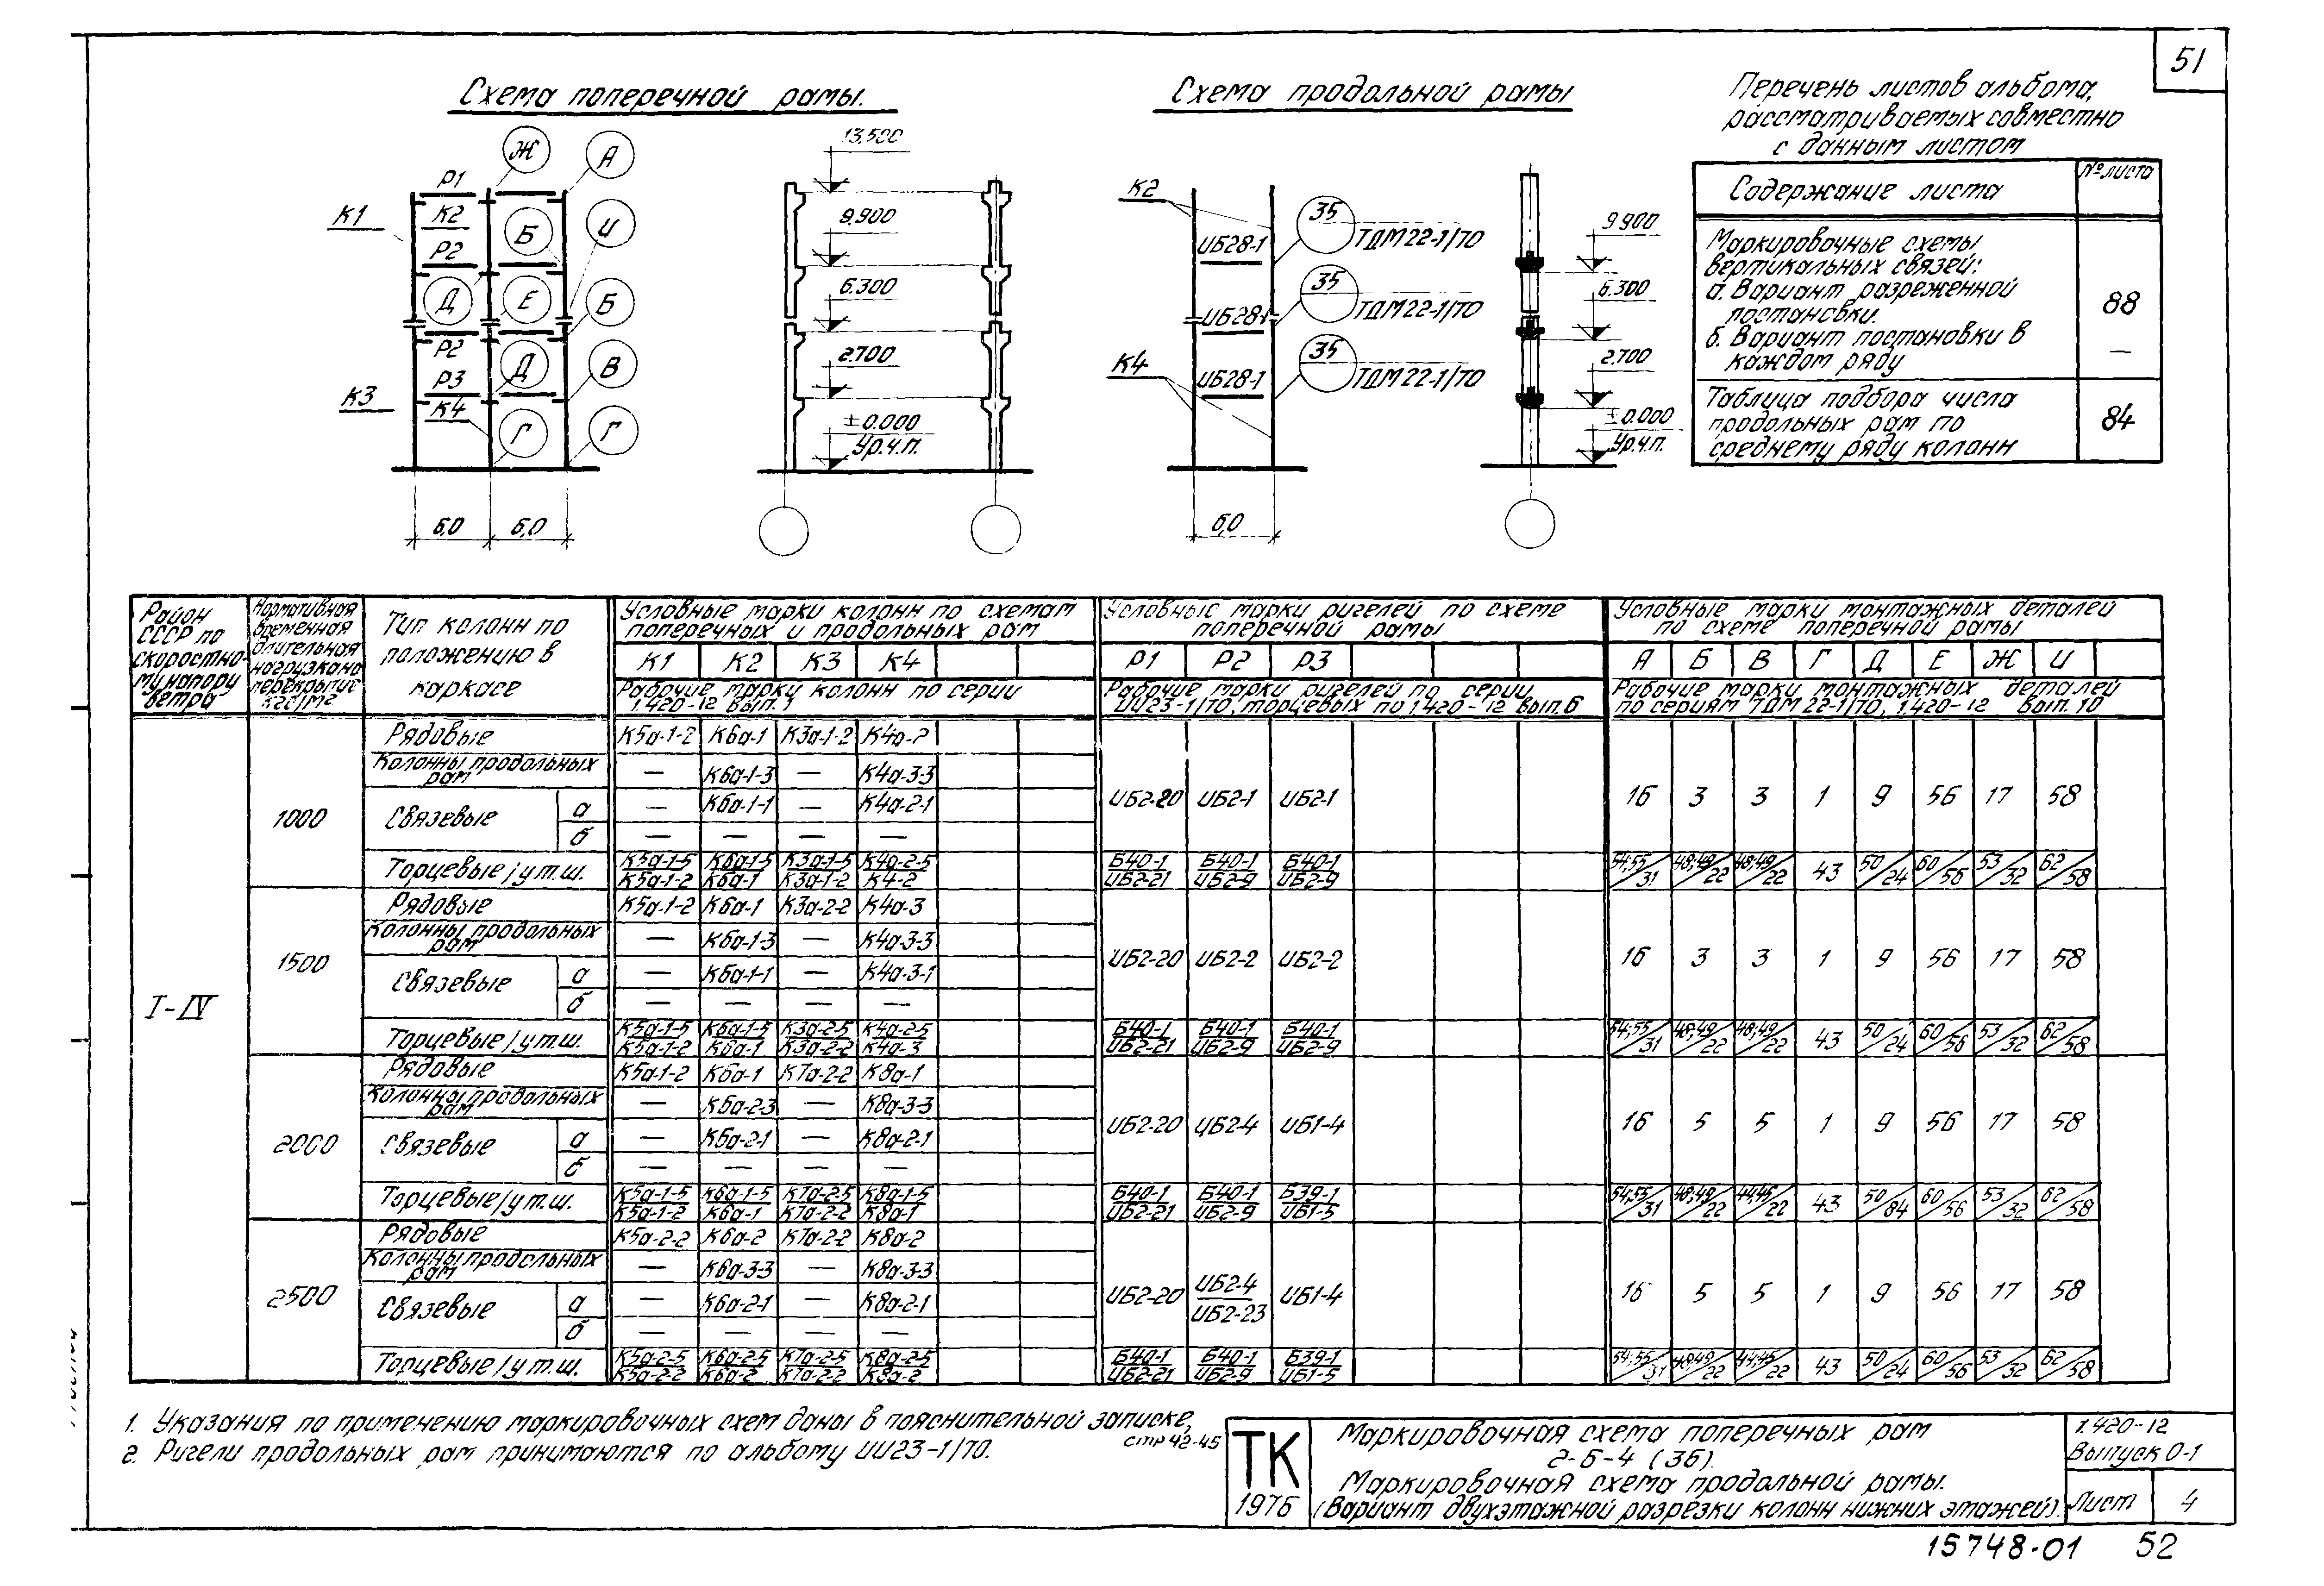 51
Схема поперечной рамы.
Схема продольной рамы
Перечень листов альбома,
рассматриваемых совместно
с данным листом
Содержание листа
№ листа
Маркировочные схемы
вертикальных связей:
а. Вариант разреженной
постановки.
88
б. Вариант постановки в
каждом ряду
—
Таблица подбора числа
продольных рам по
среднему ряду колонн
84
Ж А
Р1
К1 К2 Б И
Р2
Д Е Б
Р2
Р3 Д В
К3 К4
Г Г
6,0 6,0
13.500
9.900
6.300
2.700
±0.000
Ур.ч.п.
К2
ИБ28-1 35 ТДМ22-1/70
ИБ28-1 35 ТДМ22-1/70
К4
ИБ28-1 35 ТДМ22-1/70
6,0
9.900
6.300
2.700
±0.000
Ур.ч.п.
Район СССР по скоростному напору ветра
Нормативная временная длительная нагрузка на перекрытие кгс/м2
Тип колонн по положению в каркасе
Условные марки колонн по схемам
поперечных и продольных рам
К1 К2 К3 К4
Рабочие марки колонн по серии
1.420-12 вып. 1
Условные марки ригелей по схеме
поперечной рамы
Р1 Р2 Р3
Рабочие марки ригелей по серии
ИИ23-1/70, торцевых по 1.420-12 вып. 6
Условные марки монтажных деталей
по схеме поперечной рамы
А Б В Г Д Е Ж И
Рабочие марки монтажных деталей
по сериям ТДМ 22-1/70, 1.420-12 вып. 10
I-IV
1000
Рядовые К5а-1-2 К6а-1 К3а-1-2 К4а-2
Колонны продольных рам — К6а-1-3 — К4а-3-3
Связевые а — К6а-1-1 — К4а-2-1
б — — — —
ИБ2-20 ИБ2-1 ИБ2-1 16 3 3 1 9 56 17 58
Торцевые/у т.ш. К5а-1-5/К5а-1-2 К6а-1-5/К6а-1 К3а-1-5/К3а-1-2 К4а-2-5/К4-2 Б40-1/ИБ2-21 Б40-1/ИБ2-9 Б40-1/ИБ2-9 54;55/31 48;49/22 48;49/22 43 50/24 60/56 53/32 62/58
1500
Рядовые К5а-1-2 К6а-1 К3а-2-2 К4а-3
Колонны продольных рам — К6а-1-3 — К4а-3-3
Связевые а — К6а-1-1 — К4а-3-1
б — — — —
ИБ2-20 ИБ2-2 ИБ2-2 16 3 3 1 9 56 17 58
Торцевые/у т.ш. К5а-1-5/К5а-1-2 К6а-1-5/К6а-1 К3а-2-5/К3а-2-2 К4а-2-5/К4а-3 Б40-1/ИБ2-21 Б40-1/ИБ2-9 Б40-1/ИБ2-9 54;55/31 48;49/22 48;49/22 43 50/24 60/56 53/32 62/58
2000
Рядовые К5а-1-2 К6а-1 К7а-2-2 К8а-1
Колонны продольных рам — К6а-2-3 — К8а-3-3
Связевые а — К6а-2-1 — К8а-2-1
б — — — —
ИБ2-20 ИБ2-4 ИБ1-4 16 5 5 1 9 56 17 58
Торцевые/у т.ш. К5а-1-5/К5а-1-2 К6а-1-5/К6а-1 К7а-2-5/К7а-2-2 К8а-1-5/К8а-1 Б40-1/ИБ2-21 Б40-1/ИБ2-9 Б39-1/ИБ1-5 54;55/31 48;49/22 44;45/22 43 50/84 60/56 53/32 62/58
2500
Рядовые К5а-2-2 К6а-2 К7а-2-2 К8а-2
Колонны продольных рам — К6а-3-3 — К8а-3-3
Связевые а — К6а-2-1 — К8а-2-1
б — — — —
ИБ2-20 ИБ2-4/ИБ2-23 ИБ1-4 16 5 5 1 9 56 17 58
Торцевые/у т.ш. К5а-2-5/К5а-2-2 К6а-2-5/К6а-2 К7а-2-5/К7а-2-2 К8а-2-5/К8а-2 Б40-1/ИБ2-21 Б40-1/ИБ2-9 Б39-1/ИБ1-5 54;55/31 48;49/22 44;45/22 43 50/24 60/56 53/32 62/58
1. Указания по применению маркировочных схем даны в пояснительной записке,
стр 42-45
2. Ригели продольных рам принимаются по альбому ИИ23-1/70.
ТК
1976
Маркировочная схема поперечных рам
2-6-4 (36).
Маркировочная схема продольной рамы.
(Вариант двухэтажной разрезки колонн нижних этажей).
1.420-12
Выпуск 0-1
Лист 4
15748-01 52